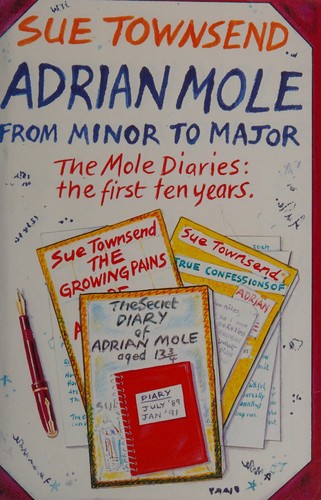 SUE TOWNSEND
ADRIAN MOLE
FROM MINOR TO MAJOR
The Mole Diaries:
the first ten years.
Sue Townsend
THE
GROWING PAINS
Sue Townsend
TRUE CONFESSIONS OF
ADRIAN
The Secret
DIARY
of
ADRIAN MOLE
aged 13 3/4
DIARY
JULY '89
JAN '91